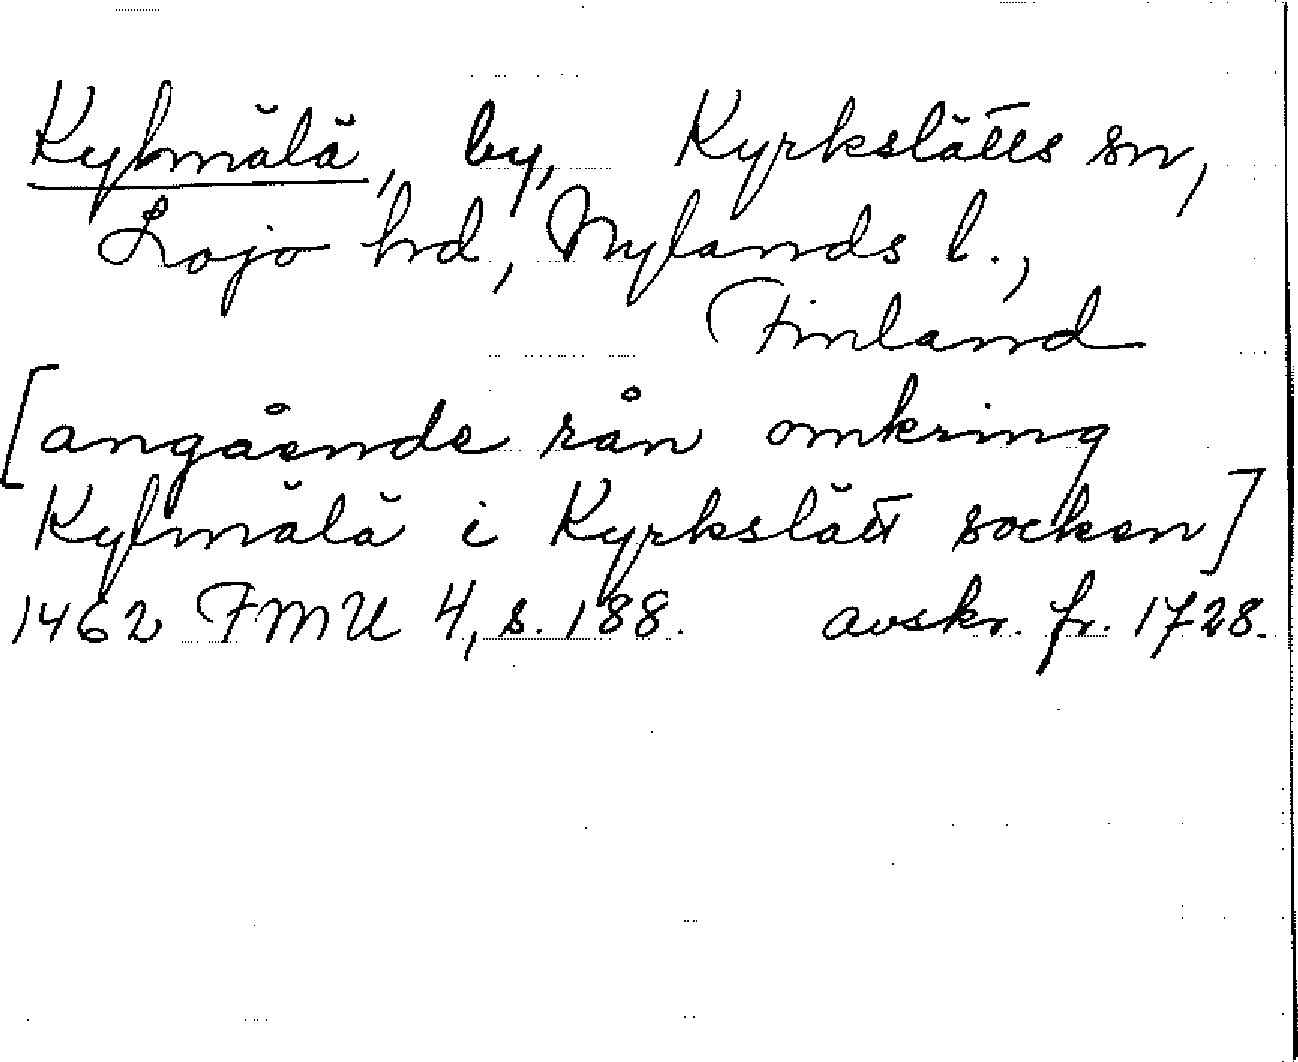 Kylmälä, by, Kyrkslätts sn,
Lojo hd, Nylands l.,
Finland
[angående rån omkring
Kylmälä i Kyrkslätt socken]
1462 FMU 4, s. 188. avskr. fr. 1728.